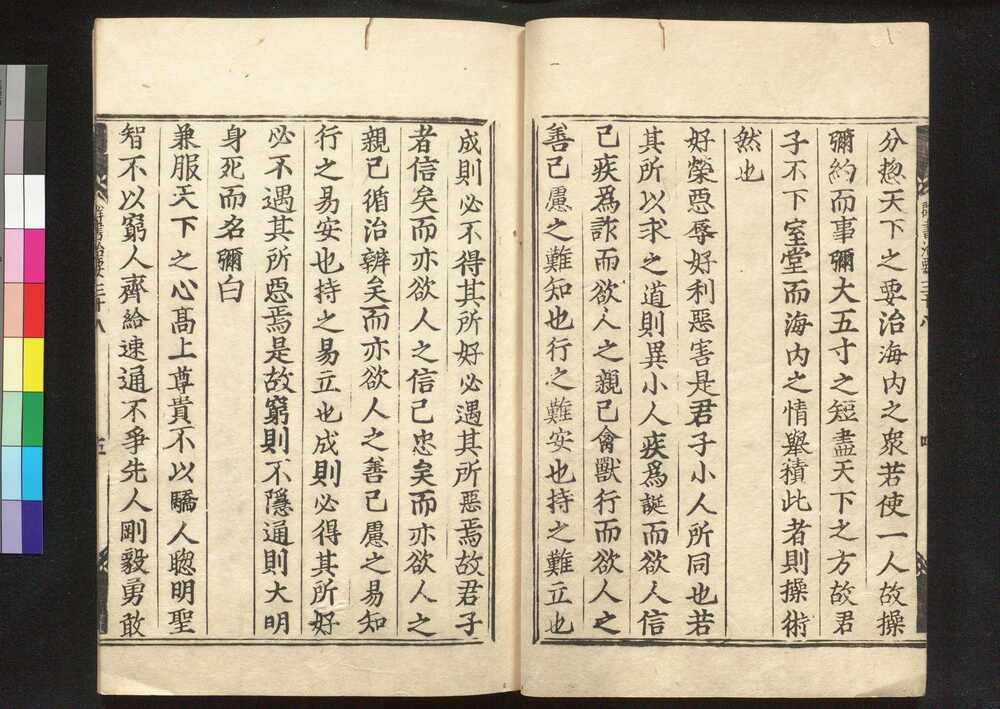 分揔天下之要治海内之衆若使一人故操
彌約而事彌大五寸之矩盡天下之方故君
子不下室堂而海内之情舉積此者則操術
然也
好榮惡辱好利惡害是君子小人所同也若
其所以求之道則異小人疾爲誕而欲人信
己疾爲詐而欲人之親己禽獸行而欲人之
善己慮之難知也行之難安也持之難立也
成則必不得其所好必遇其所惡焉故君子
者信矣而亦欲人之信己忠矣而亦欲人之
親己循治辨矣而亦欲人之善己慮之易知
行之易安也持之易立也成則必得其所好
必不遇其所惡焉是故窮則不隱通則大明
身死而名彌白
兼服天下之心髙上尊貴不以驕人聦明聖
智不以窮人齊給速通不爭先人剛毅勇敢
群書治要三十八
五